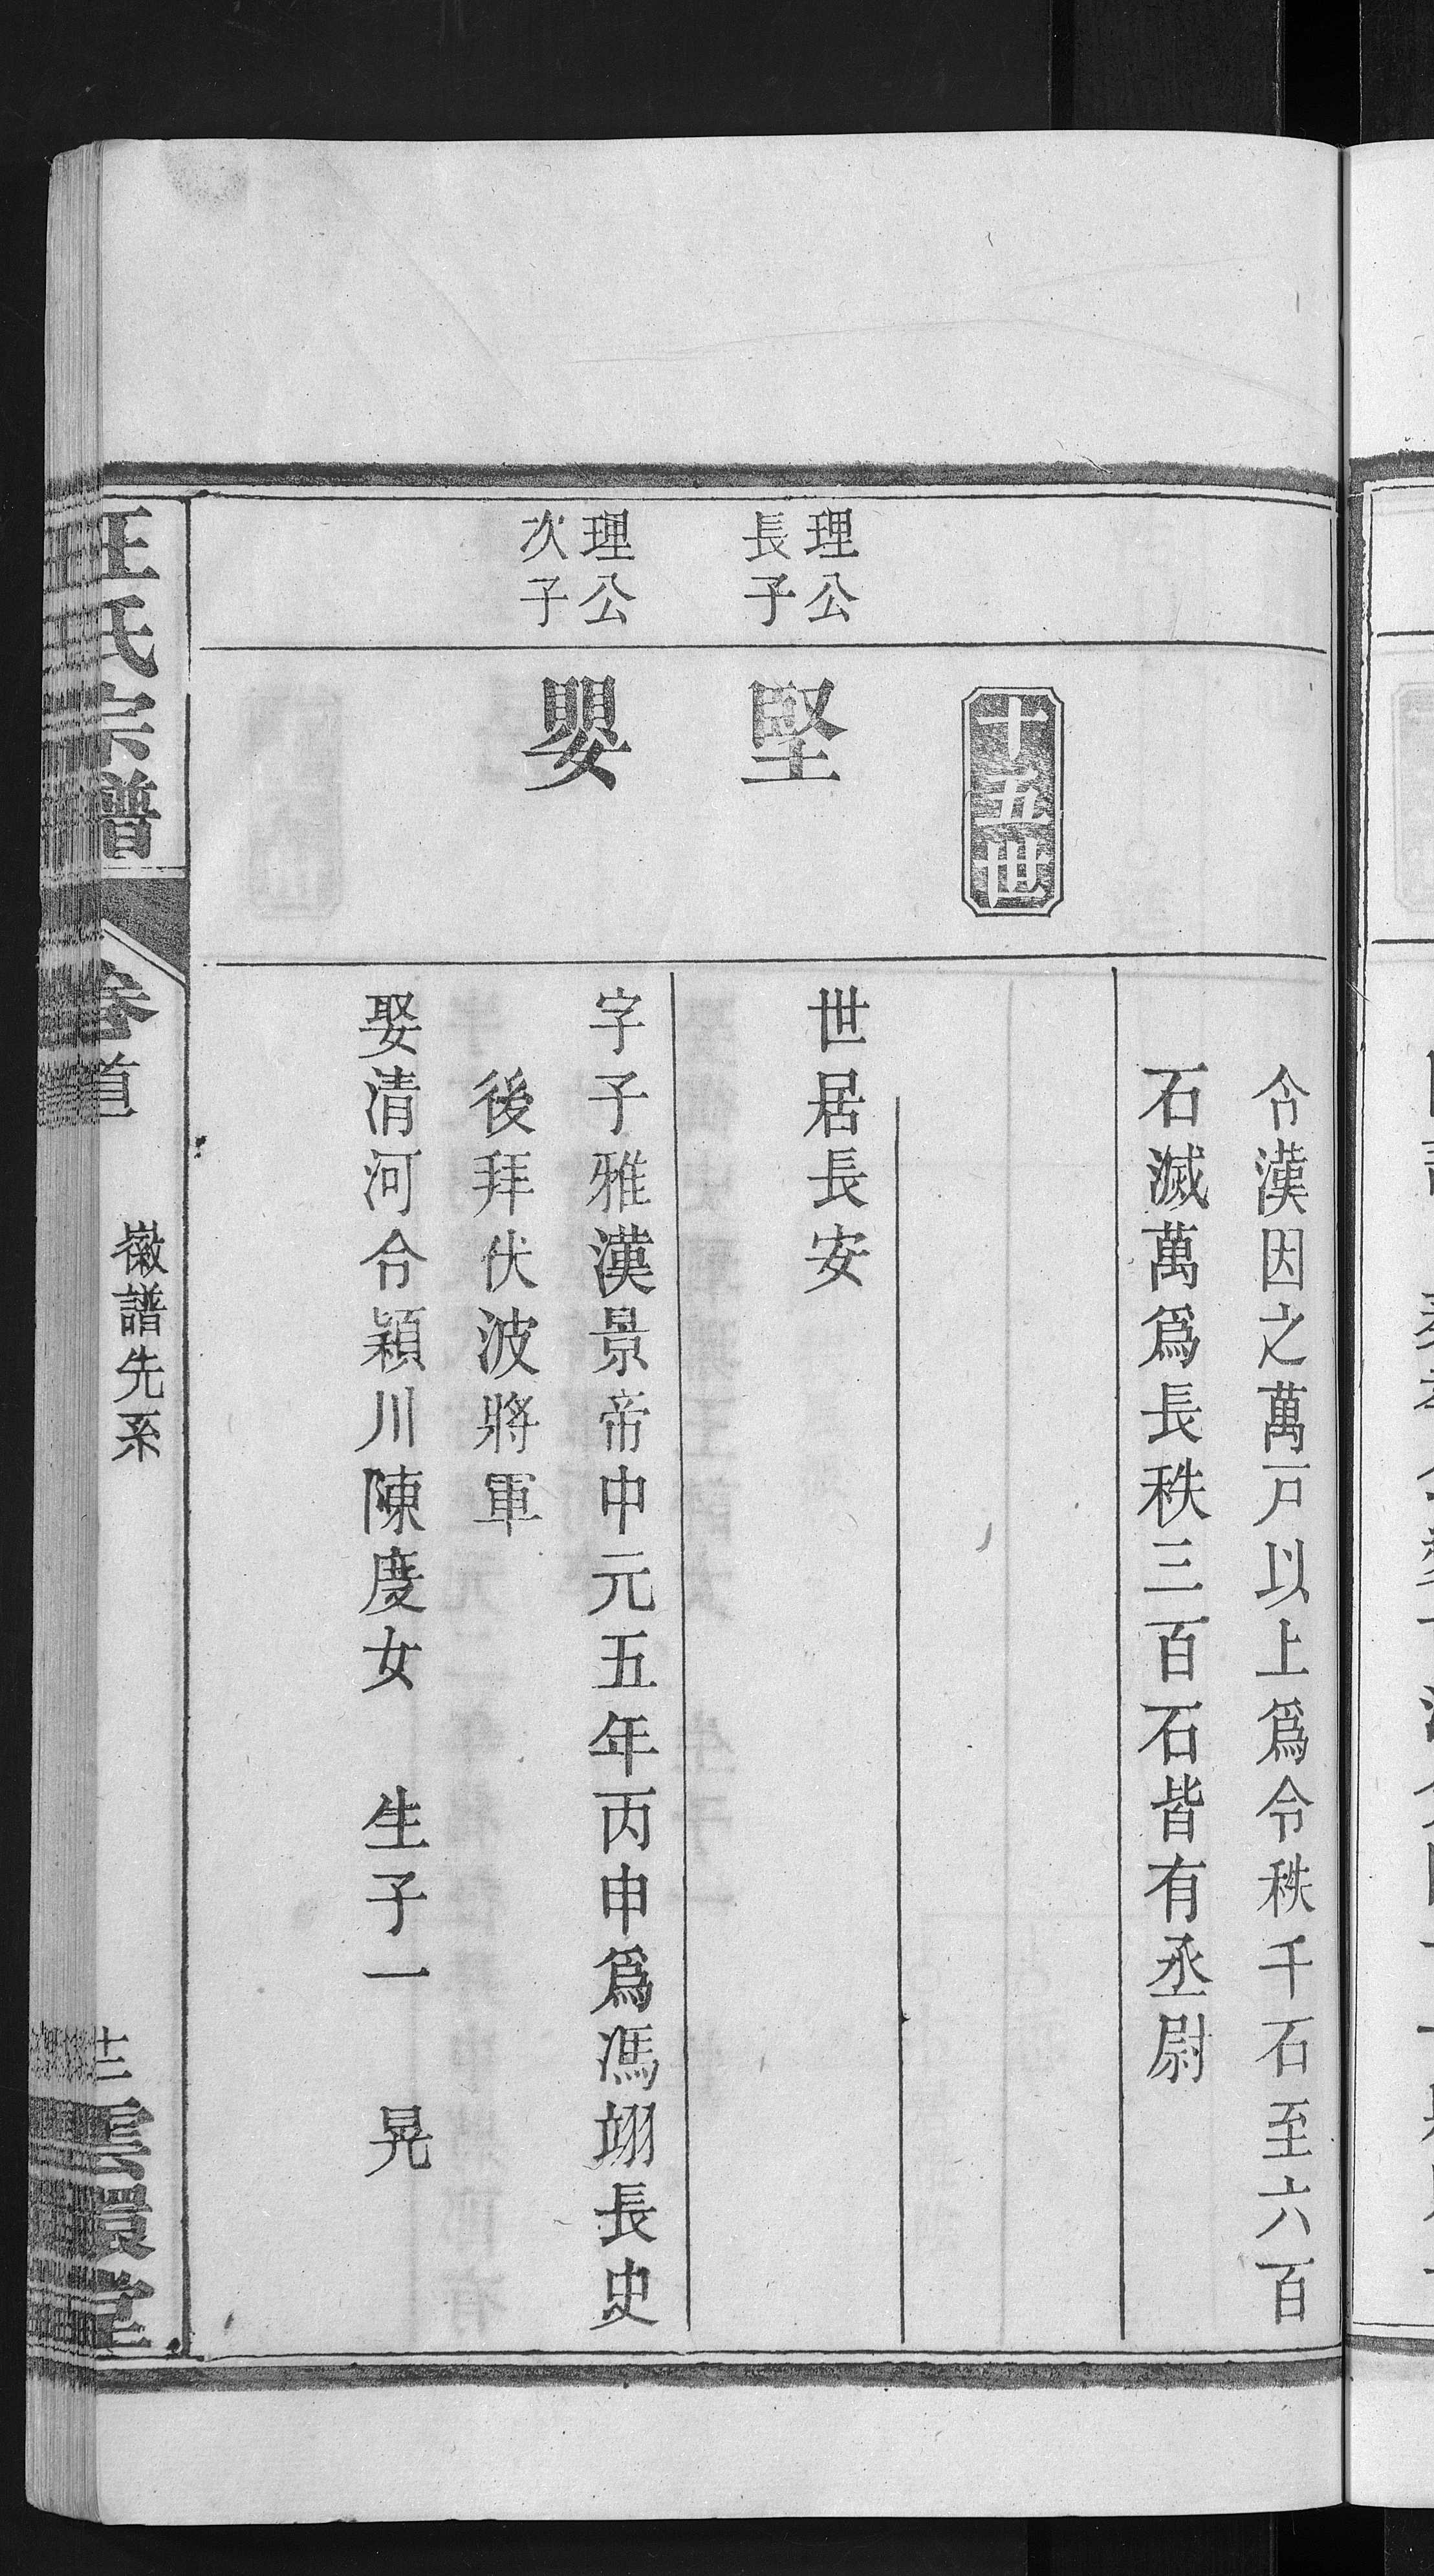 令漢因之萬戸以上爲令秩千石至六百
石滅萬爲長秩三百石皆有丞尉
十五世
理公
長子
堅
世居長安
理公
次子
嬰
字子雅漢景帝中元五年丙申爲馮翊長史
後拜伏波將軍
娶清河令潁川陳慶女　生子一　晃
汪氏宗譜
卷首
徽譜先系
十三
雲環堂